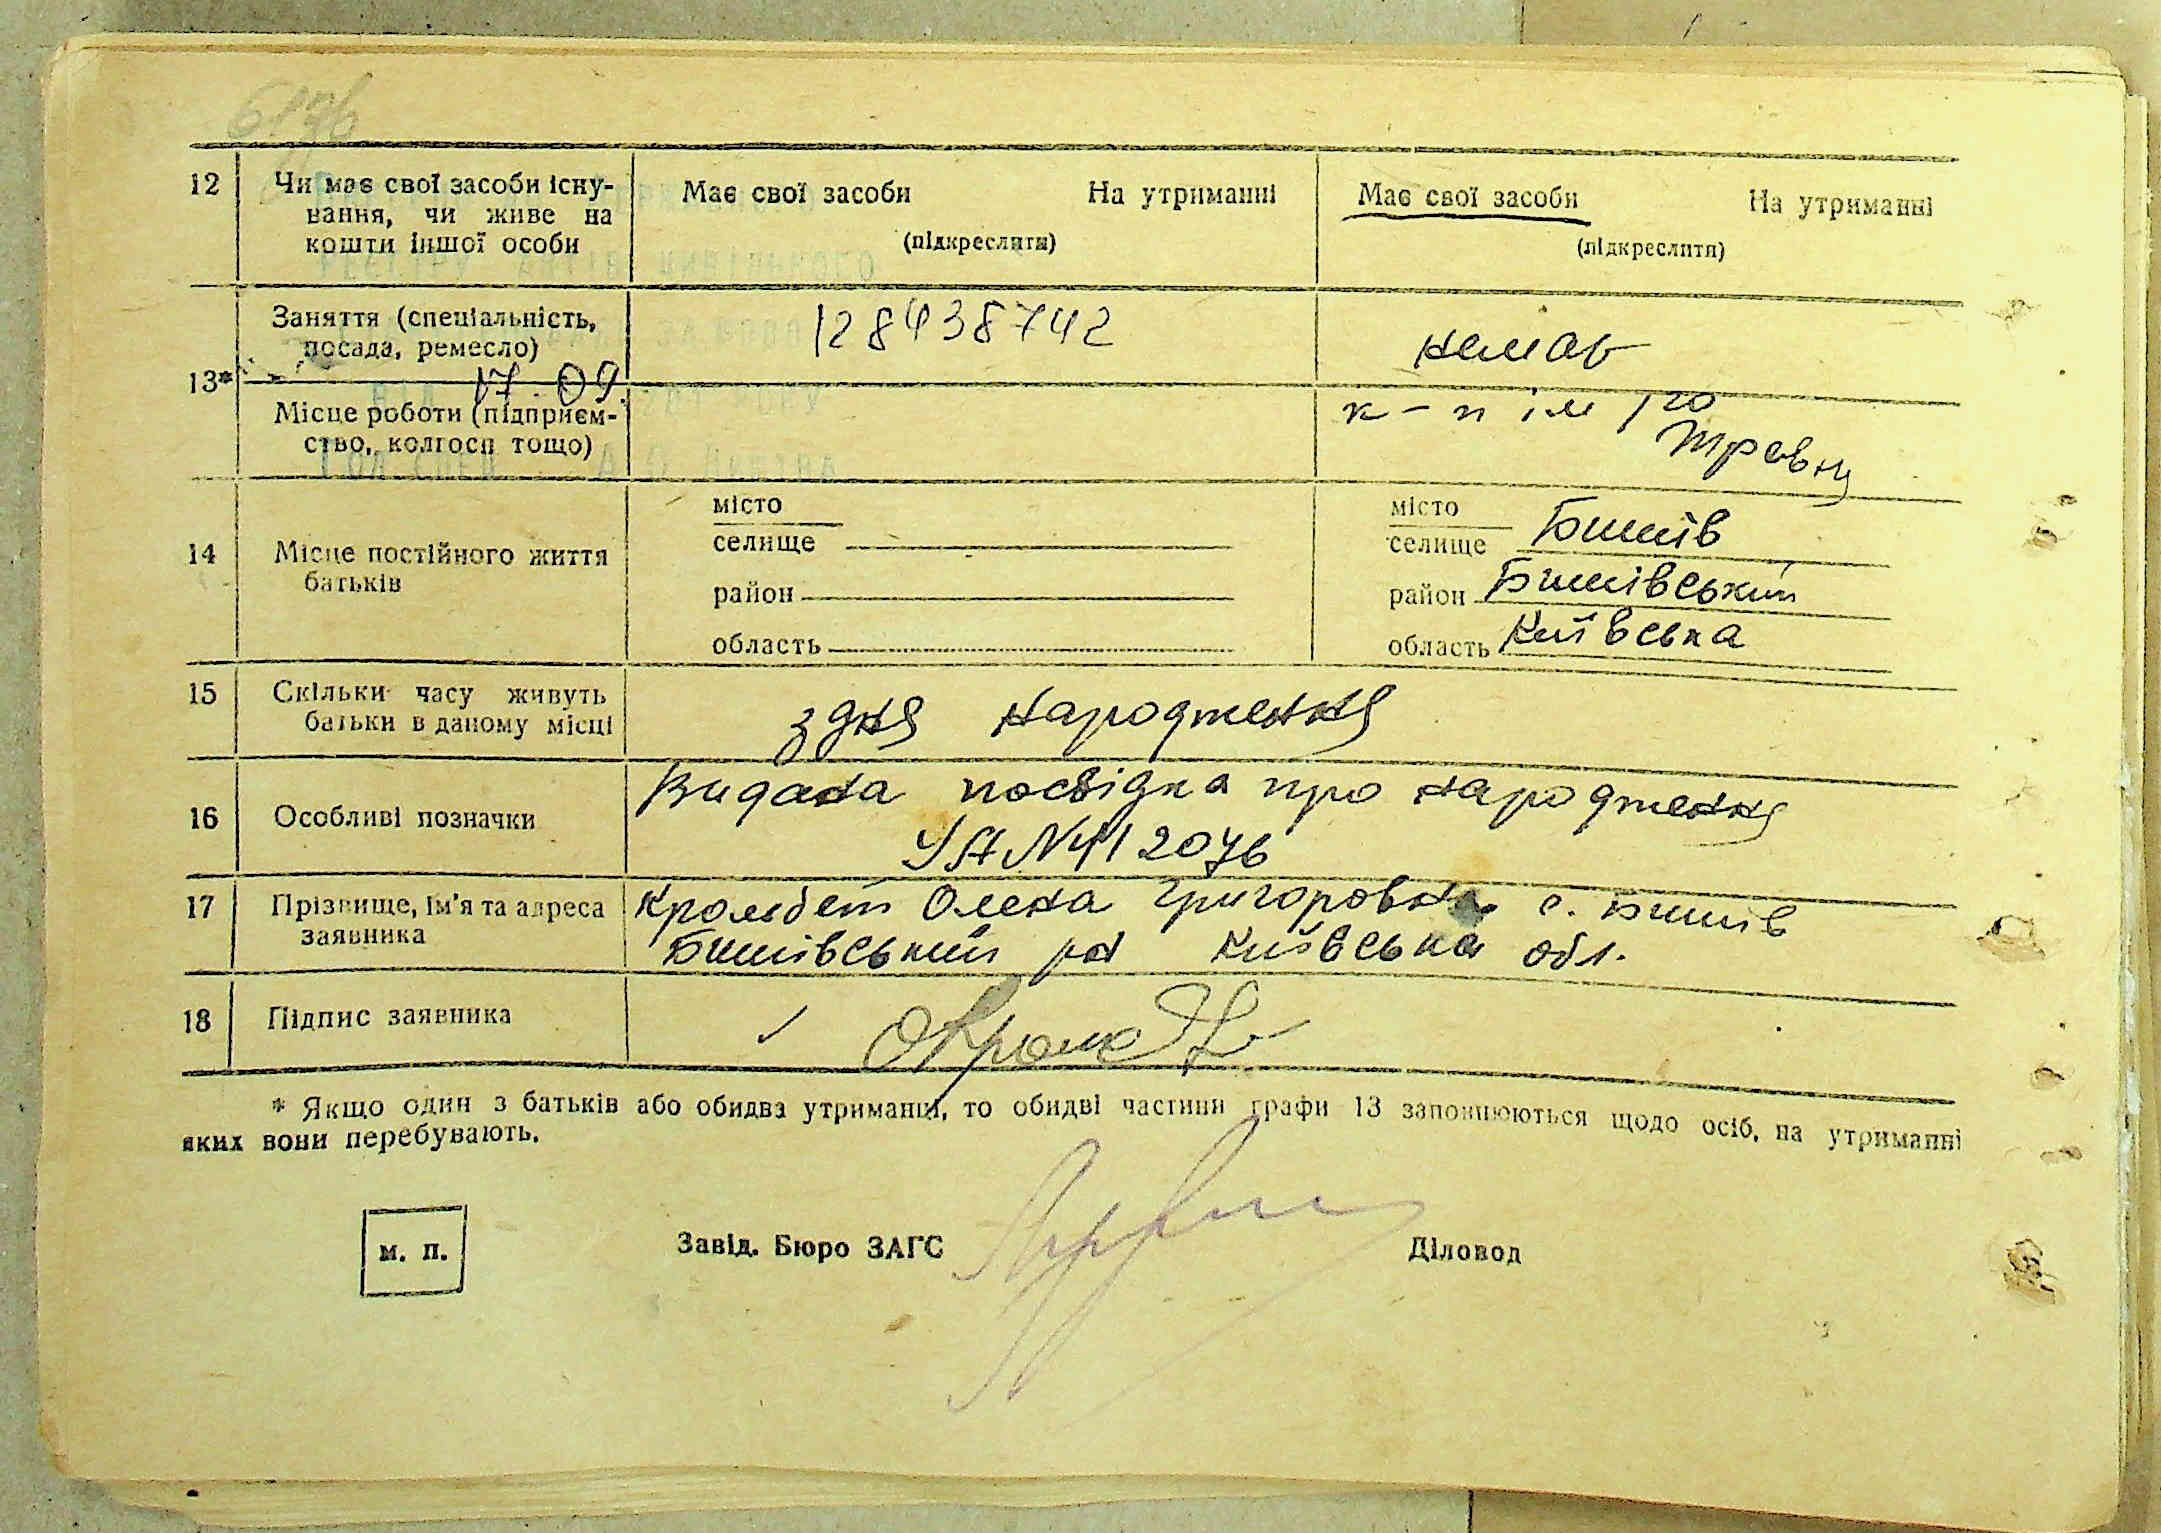 12 Чи має свої засоби існу- Має свої засоби На утриманні Має свої засоби На утриманні
вання, чи живе на
кошти іншої особи (підкреслити) (підкреслити)
Заняття (спеціальність, 128438742
посада, ремесло) немає
13* 17 09
Місце роботи (підприєм- к-п ім 1го
ство, колгосп тощо) Травня
місто місто
14 Місце постійного життя селище селище Бишів
батьків район район Бишівський
область область Київська
15 Скільки часу живуть з дня народження
батьки в даному місці
Видана посвідка про народження
16 Особливі позначки УА № 412076
17 Прізвище, ім'я та адреса Кромбет Олена Григоровна с. Бишів
заявника Бишівський рн Київська обл.
18 Підпис заявника
* Якщо один з батьків або обидва утриманці, то обидві частини графи 13 заповнюються щодо осіб, на утриманні
яких вони перебувають.
м. п. Завід. Бюро ЗАГС Діловод